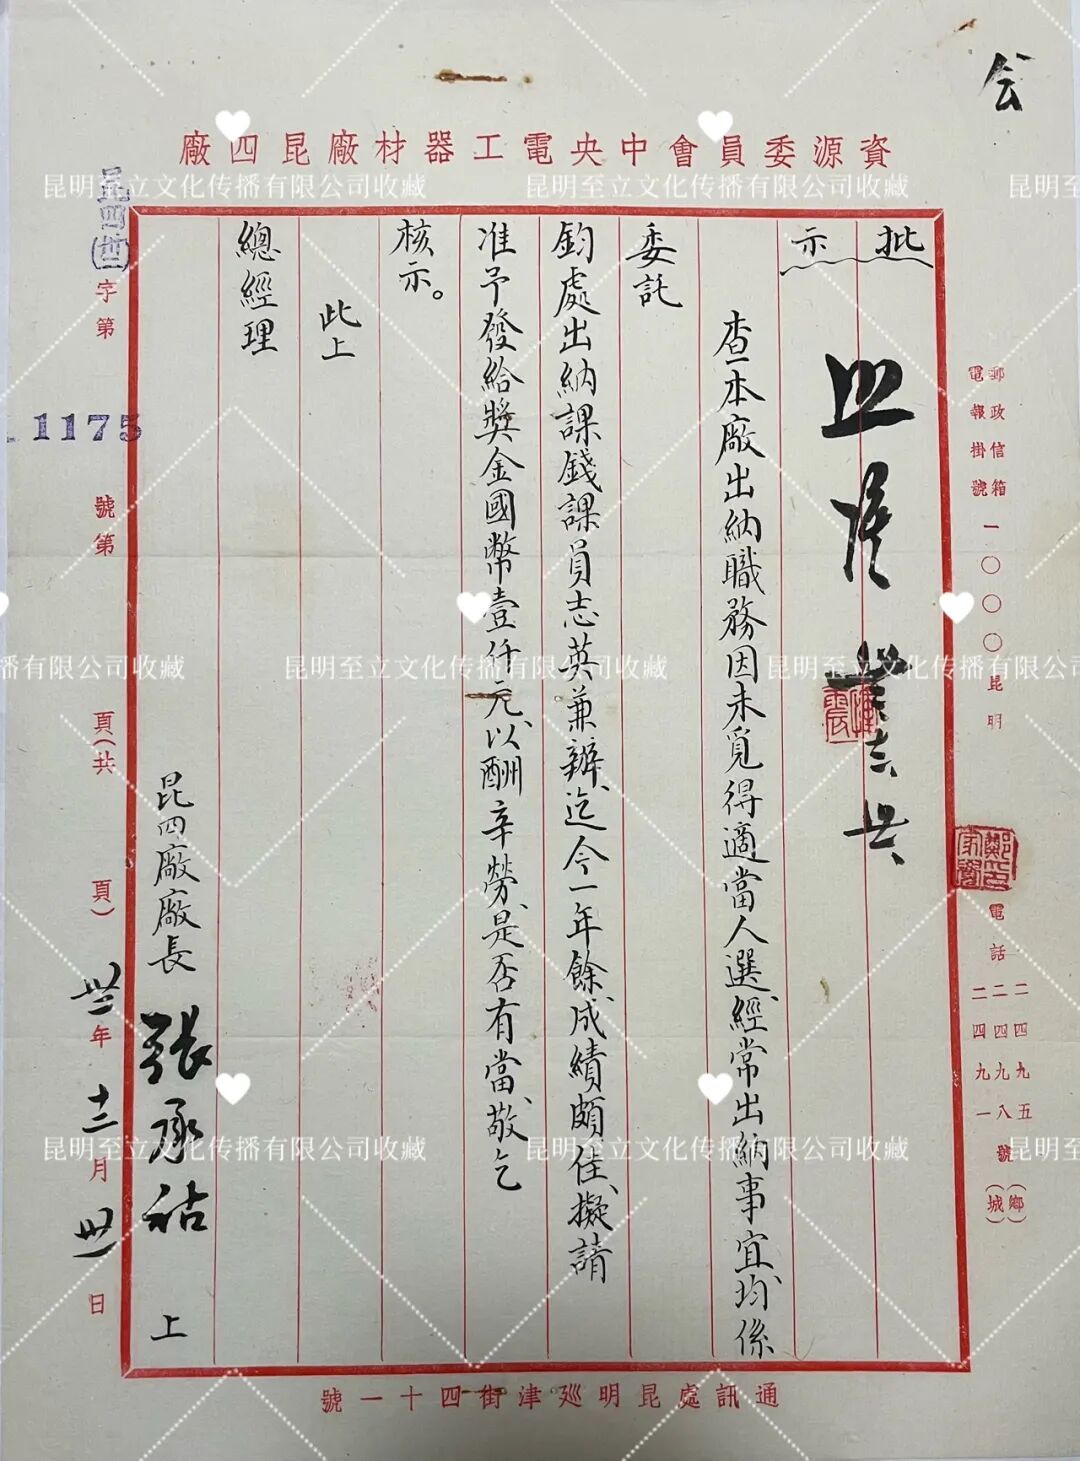 会
資源委員會中央電工器材廠昆四廠
批示
查本廠出納職務因未覓得適當人選經常出納事宜均係
委託
鈞處出納課錢課員志英兼辦、迄今一年餘、成績頗佳、擬請
准予發給獎金國幣壹仟元、以酬辛勞、是否有當、敬乞
核示。
此上
總經理
昆四廠廠長 張承祜 上
昆四(卅二)字第 1175 號第 頁(共 頁) 卅二年十二月卅一日
郵政信箱
電報掛號 一〇〇〇昆明
電話
二四九五
二四九八號(鄉)
二四九一(城)
通訊處昆明巡津街四十一號
昆明至立文化传播有限公司收藏
昆明至立文化传播有限公司收藏
昆明至立文化传播有限公司收藏
昆明至立文化传播有限公司收藏
昆明至立文化传播有限公司收藏
昆明至立文化传播有限公司收藏